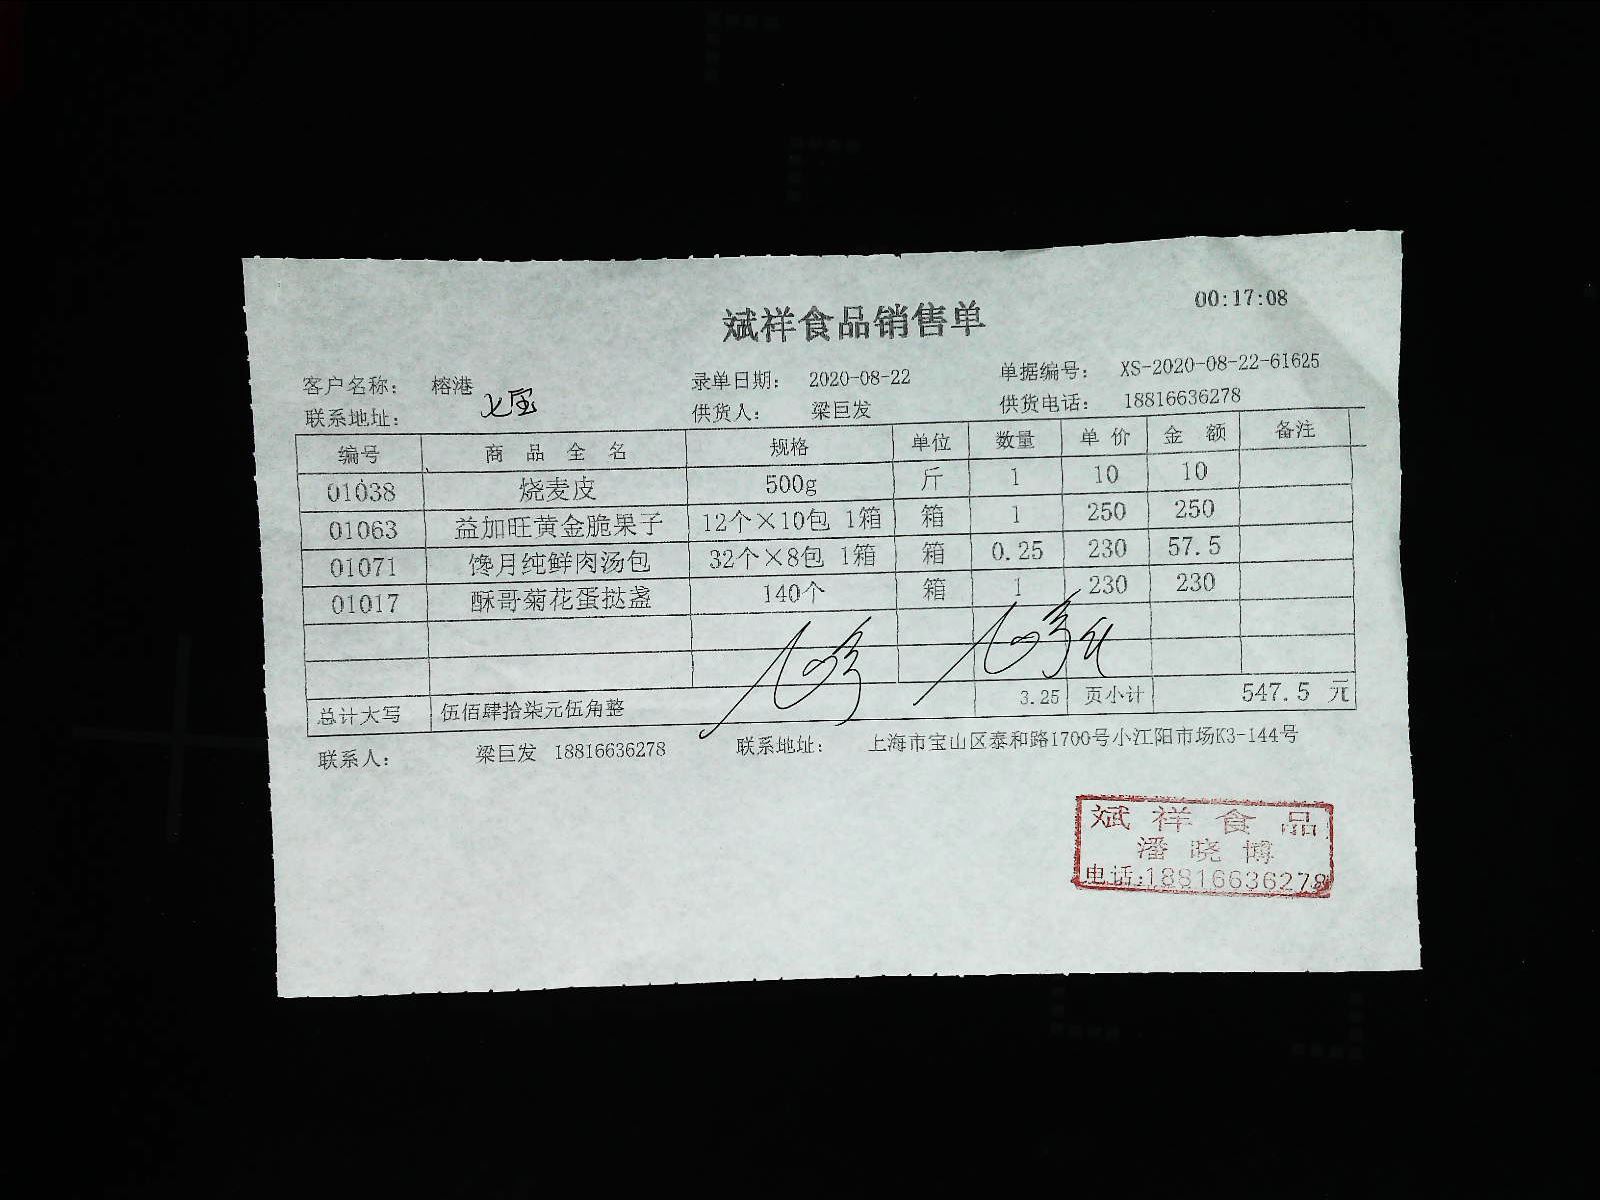 00:17:08
斌祥食品销售单
客户名称： 榕港 录单日期： 2020-08-22 单据编号： XS-2020-08-22-61625
七宝
联系地址： 供货人： 梁巨发 供货电话： 18816636278
编号 商 品 全 名 规格 单位 数量 单 价 金 额 备注
01038 烧麦皮 500g 斤 1 10 10
01063 益加旺黄金脆果子 12个×10包 1箱 箱 1 250 250
01071 馋月纯鲜肉汤包 32个×8包 1箱 箱 0.25 230 57.5
01017 酥哥菊花蛋挞盏 140个 箱 1 230 230
总计大写 伍佰肆拾柒元伍角整 3.25 页小计 547.5 元
联系人： 梁巨发 18816636278 联系地址： 上海市宝山区泰和路1700号小江阳市场K3-144号
斌 祥 食 品
潘 晓 博
电话:18816636278